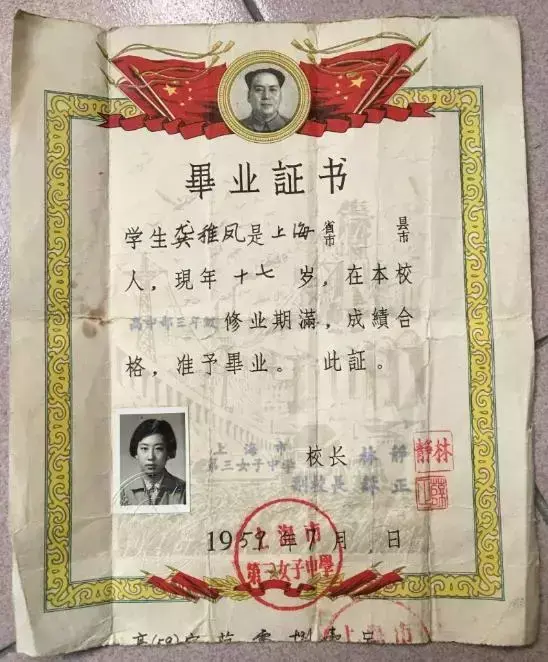 畢业証书
学生龚雅凤是上海省市 县市
人，現年十七岁，在本校
高中部三年級修业期滿，成績合
格，准予畢业。此証。
上海市
第三女子中学
校长 林静
副校長 薛正
林静
1959年7月 日
上海市
第三女子中學
上海市